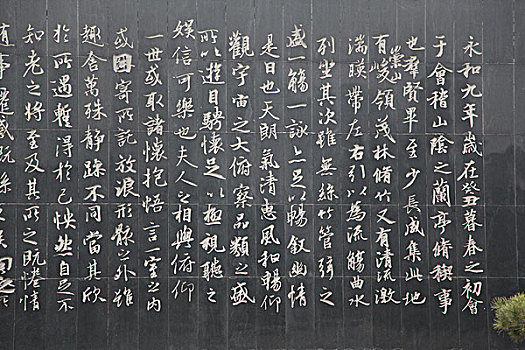 永和九年歲在癸丑暮春之初會
于會稽山陰之蘭亭脩稧事
也羣賢畢至少長咸集此地
有崇山峻領茂林脩竹又有清流激
湍暎帶左右引以為流觴曲水
列坐其次雖無絲竹管弦之
盛一觴一詠亦足以暢敘幽情
是日也天朗氣清惠風和暢仰
觀宇宙之大俯察品類之盛
所以遊目騁懷足以極視聽之
娛信可樂也夫人之相與俯仰
一世或取諸懷抱悟言一室之內
或因寄所託放浪形骸之外雖
趣舍萬殊靜躁不同當其欣
於所遇蹔得於己怏然自足不
知老之將至及其所之既惓情
隨事遷感慨係之矣向之